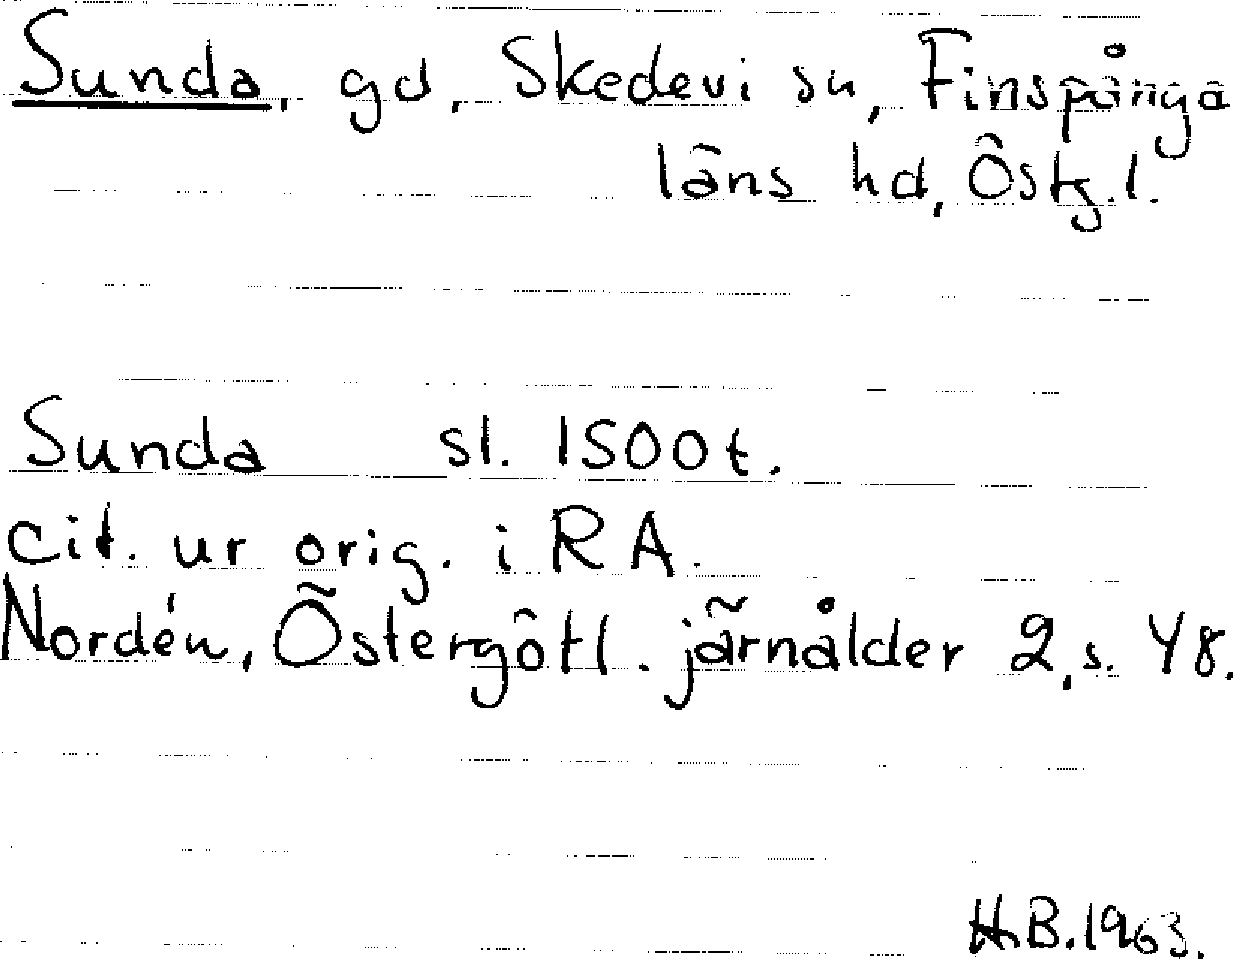 Sunda, gd, Skedevi sn, Finspånga
läns hd, Östg.l.
Sunda sl. 1500t.
cit. ur orig. i RA.
Nordén, Östergötl. järnålder 2, s. 48.
H.B. 1963.